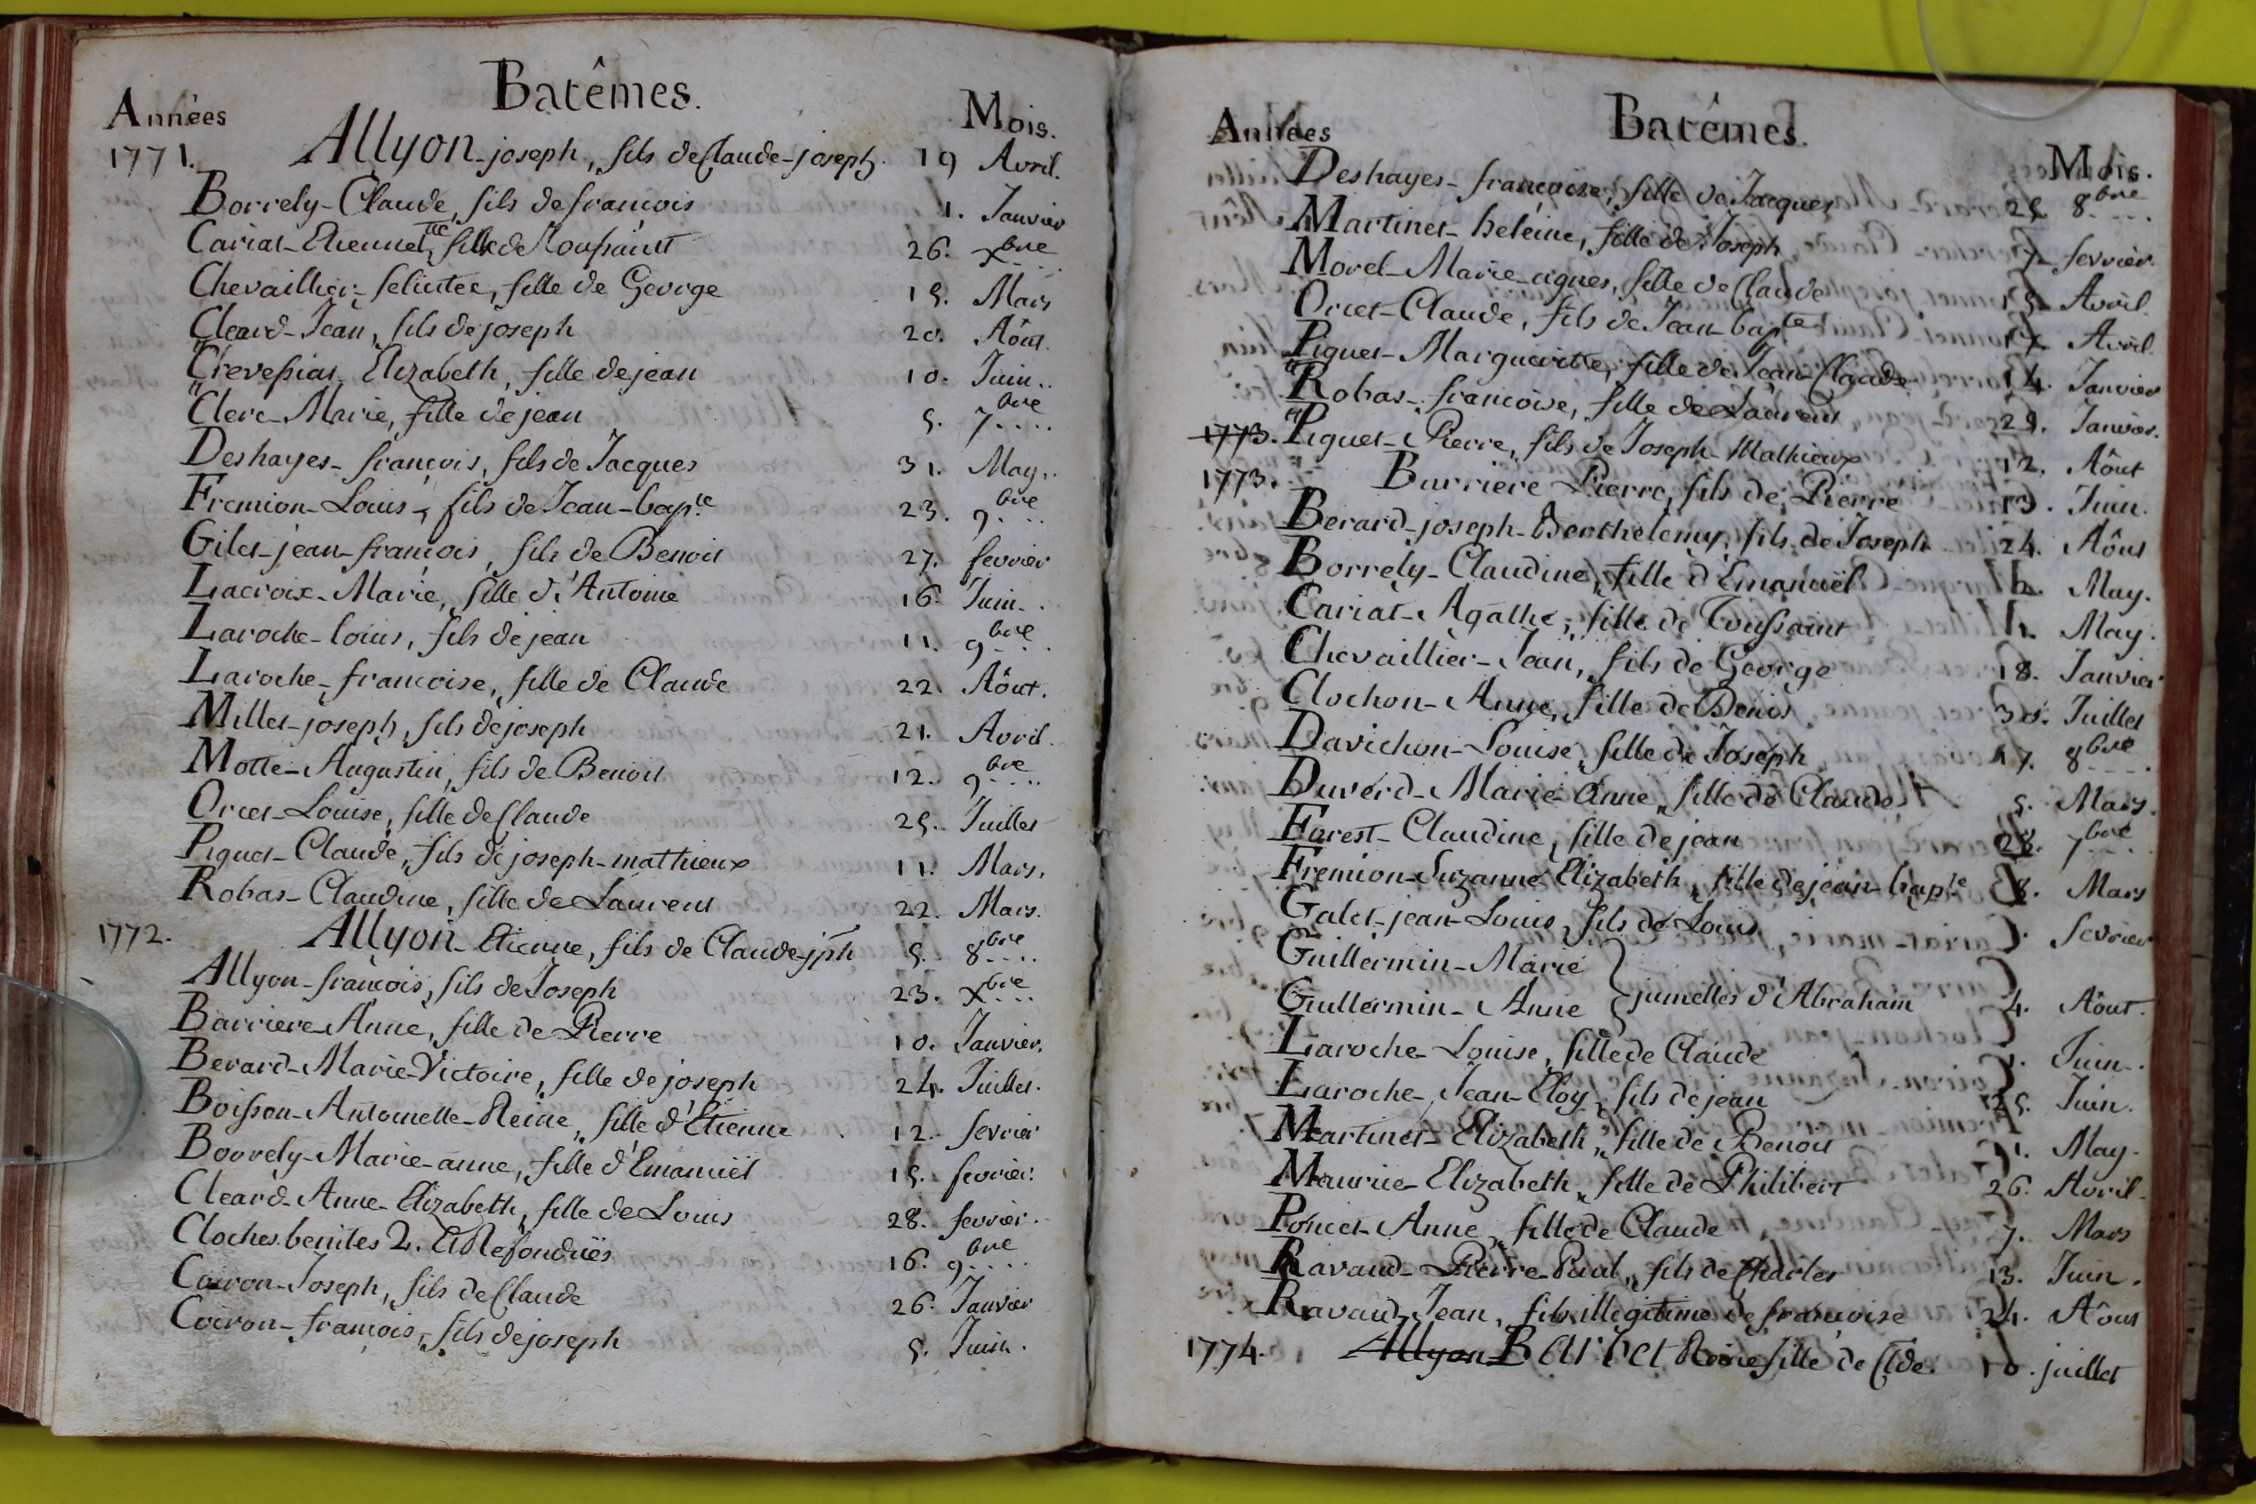 Batêmes.
Années Mois.
1771. Allyon-joseph, fils de Claude-joseph. 19 Avril.
Borrely-Claude, fils de françois 1. Janvier
Cariat-Etiennette, fille de Toussaint 26. Xbre
Chevaillier-felicitée, fille de George 15. Mars
Cleard-Jean, fils de joseph 20. Aôut.
Crevessiat Elizabeth, fille de jean 10. Juin..
Clerc-Marie, fille de jean 5. 7bre
Deshayes-françois, fils de Jacques 31. May..
Fremion-Louis, fils de Jean-bapte 23. 9bre
Gilet-jean-françois, fils de Benoit 27. fevrier
Lacroix-Marie, fille d'Antoine 16. Juin..
Laroche-louis, fils de jean 11. 9bre
Laroche-francoise, fille de Claude 22. Aôut.
Millet-joseph, fils de joseph 21. Avril.
Motte-Augustin, fils de Benoit 12. 9bre
Orcet-Louise, fille de Claude 25. Juillet
Piquet-Claude, fils de joseph-mathieux 11. Mars.
Robas-Claudine, fille de Laurent 22. Mars.
1772. Allyon-Etienne, fils de Claude-jph 5. 8bre
Allyon-françois, fils de Joseph 23. Xbre
Barriere-Anne, fille de Pierre 10. Janvier.
Berard-Marie-Victoire, fille de joseph 24. Juillet.
Boisson-Antoinette-Reine, fille d'Etienne 12. fevrier
Borrely-Marie-anne, fille d'Emanuël 15. fevrier.
Cleard-Anne-Elizabeth, fille de Louis 28. fevrier.
Cloches benites 2. Et Refonduës 16. 9bre
Coiron-Joseph, fils de Claude 26. Janvier
Coiron-françois, fils de joseph 5. Juin.
Batêmes.
Années Mois.
Deshayes-françoise, fille de Jacques 25 8bre
Martinet-heleine, fille de Joseph 7 fevrier.
Morel-Marie-agnes, fille de Claude 15 Avril.
Orcet-Claude, fils de Jean-bapte 17 Avril.
Piquet-Marguerite, fille de Jean-Claude 14. Janvier
Robas-francoise, fille de Laurent 29. Janvier.
1773. Piquet-Pierre, fils de Joseph-Mathieux 12. Aôut
1773. Barriere Pierre, fils de Pierre 13. Juin.
Berard-joseph-Berthelemy, fils de Joseph 24. Aôut
Borrely-Claudine, fille d'Emanuël 2. May.
Cariat-Agathe, fille de Toussaint 1. May.
Chevaillier-Jean, fils de George 18. Janvier
Clochon-Anne, fille de Denis 30. Juillet
Davichon-Louise, fille de Joseph 17. 8bre
Duverd-Marie-Anne, fille de Claude 5. Mars.
Farest-Claudine, fille de jean 28. 7bre
Fremion-Suzanne Elizabeth, fille de jean-bapte 8. Mars
Galet-jean-Louis, fils de Louis fevrier
Guillermin-Marie
Guillermin-Anne } jumelles d'Abraham 4. Aôut.
Laroche-Louise, fille de Claude 1. Juin..
Laroche-Jean-Eloy, fils de jean 25. Juin.
Martinet-Elizabeth, fille de Benoit 1. May.
Maurice-Elizabeth, fille de Philibert 26. Avril.
Poncet-Anne, fille de Claude 7. Mars
Ravaud-Pierre-Paul, fils de Charles 13. Juin.
Ravaud Jean, fils illegitime de francoise 24. Aôut
1774. Allyon Barbet Reine fille de Clde. 10. juillet